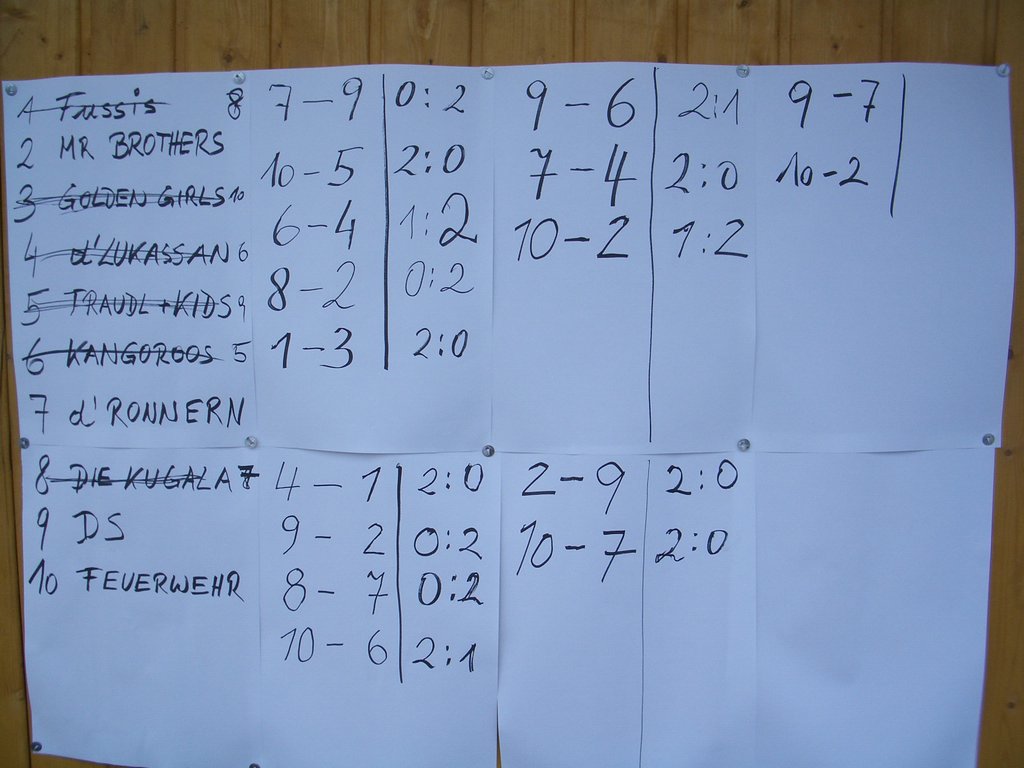 1 Fussis 8
2 MR BROTHERS
3 GOLDEN GIRLS 10
4 d'LUKASSAN 6
5 TRAUDL + KIDS 9
6 KANGOROOS 5
7 d'RONNERN
8 DIE KUGALA 7
9 DS
10 FEUERWEHR
7 – 9 0:2
10 – 5 2:0
6 – 4 1:2
8 – 2 0:2
1 – 3 2:0
4 – 1 2:0
9 – 2 0:2
8 – 7 0:2
10 – 6 2:1
9 – 6 2:1
7 – 4 2:0
10 – 2 1:2
2 – 9 2:0
10 – 7 2:0
9 – 7
10 – 2